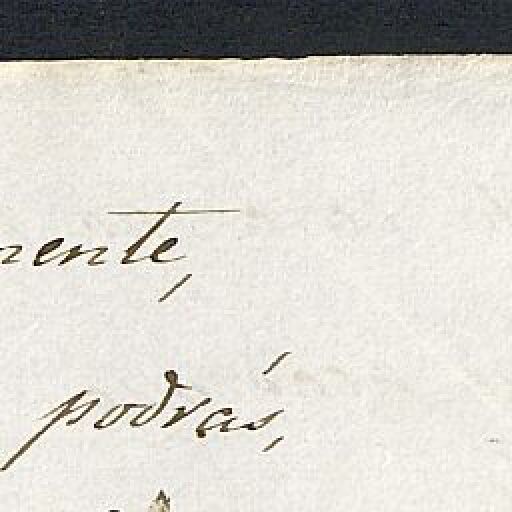 mente,
podrás,